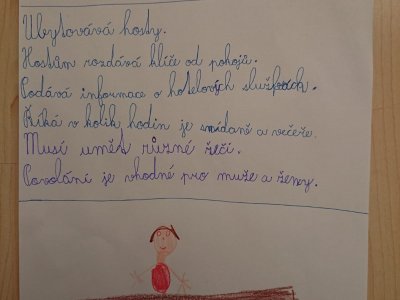 Ubytovává hosty.
Hostům rozdává klíče od pokojů.
Podává informace o hotelových službách.
Říká v kolik hodin je snídaně a večeře.
Musí umět různé řeči.
Povolání je vhodné pro muže a ženy.